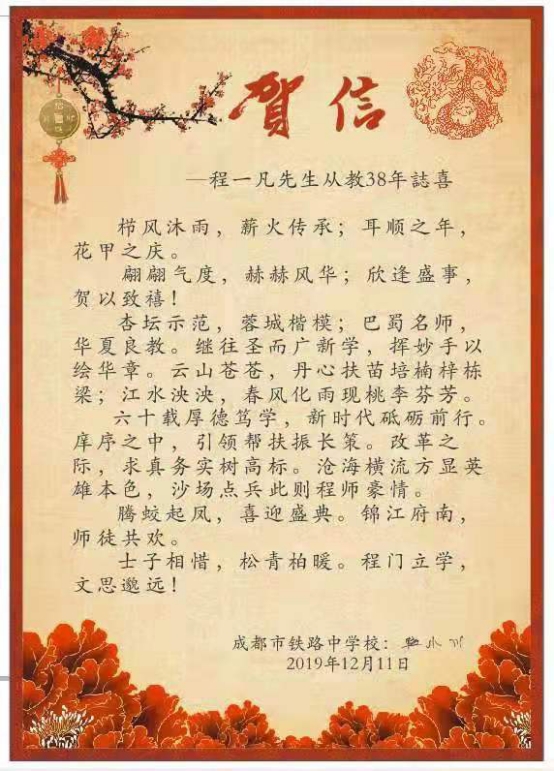 贺信
—程一凡先生从教38年誌喜
栉风沐雨，薪火传承；耳顺之年，
花甲之庆。
翩翩气度，赫赫风华；欣逢盛事，
贺以致禧！
杏坛示范，蓉城楷模；巴蜀名师，
华夏良教。继往圣而广新学，挥妙手以
绘华章。云山苍苍，丹心扶苗培楠梓栋
梁；江水泱泱，春风化雨现桃李芬芳。
六十载厚德笃学，新时代砥砺前行。
庠序之中，引领帮扶振长策。改革之
际，求真务实树高标。沧海横流方显英
雄本色，沙场点兵此则程师豪情。
腾蛟起凤，喜迎盛典。锦江府南，
师徒共欢。
士子相惜，松青柏暖。程门立学，
文思邈远！
成都市铁路中学校：
2019年12月11日